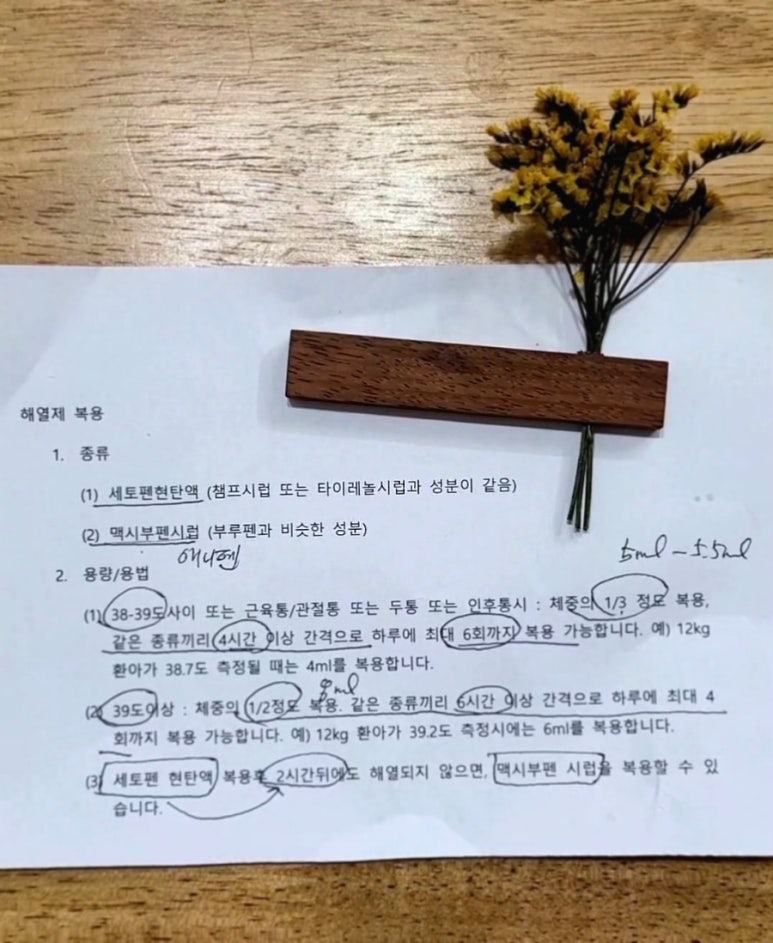 해열제 복용
1. 종류
(1) 세토펜현탄액 (챔프시럽 또는 타이레놀시럽과 성분이 같음)
(2) 맥시부펜시럽 (부루펜과 비슷한 성분)
애니펜
5ml - 5.5ml
2. 용량/용법
(1) 38-39도사이 또는 근육통/관절통 또는 두통 또는 인후통시 : 체중의 1/3 정도 복용,
같은 종류끼리 4시간 이상 간격으로 하루에 최대 6회까지 복용 가능합니다. 예) 12kg
환아가 38.7도 측정될 때는 4ml를 복용합니다.
8ml
(2) 39도이상 : 체중의 1/2정도 복용. 같은 종류끼리 6시간 이상 간격으로 하루에 최대 4
회까지 복용 가능합니다. 예) 12kg 환아가 39.2도 측정시에는 6ml를 복용합니다.
(3) 세토펜 현탄액 복용후 2시간뒤에도 해열되지 않으면, 맥시부펜 시럽을 복용할 수 있
습니다.